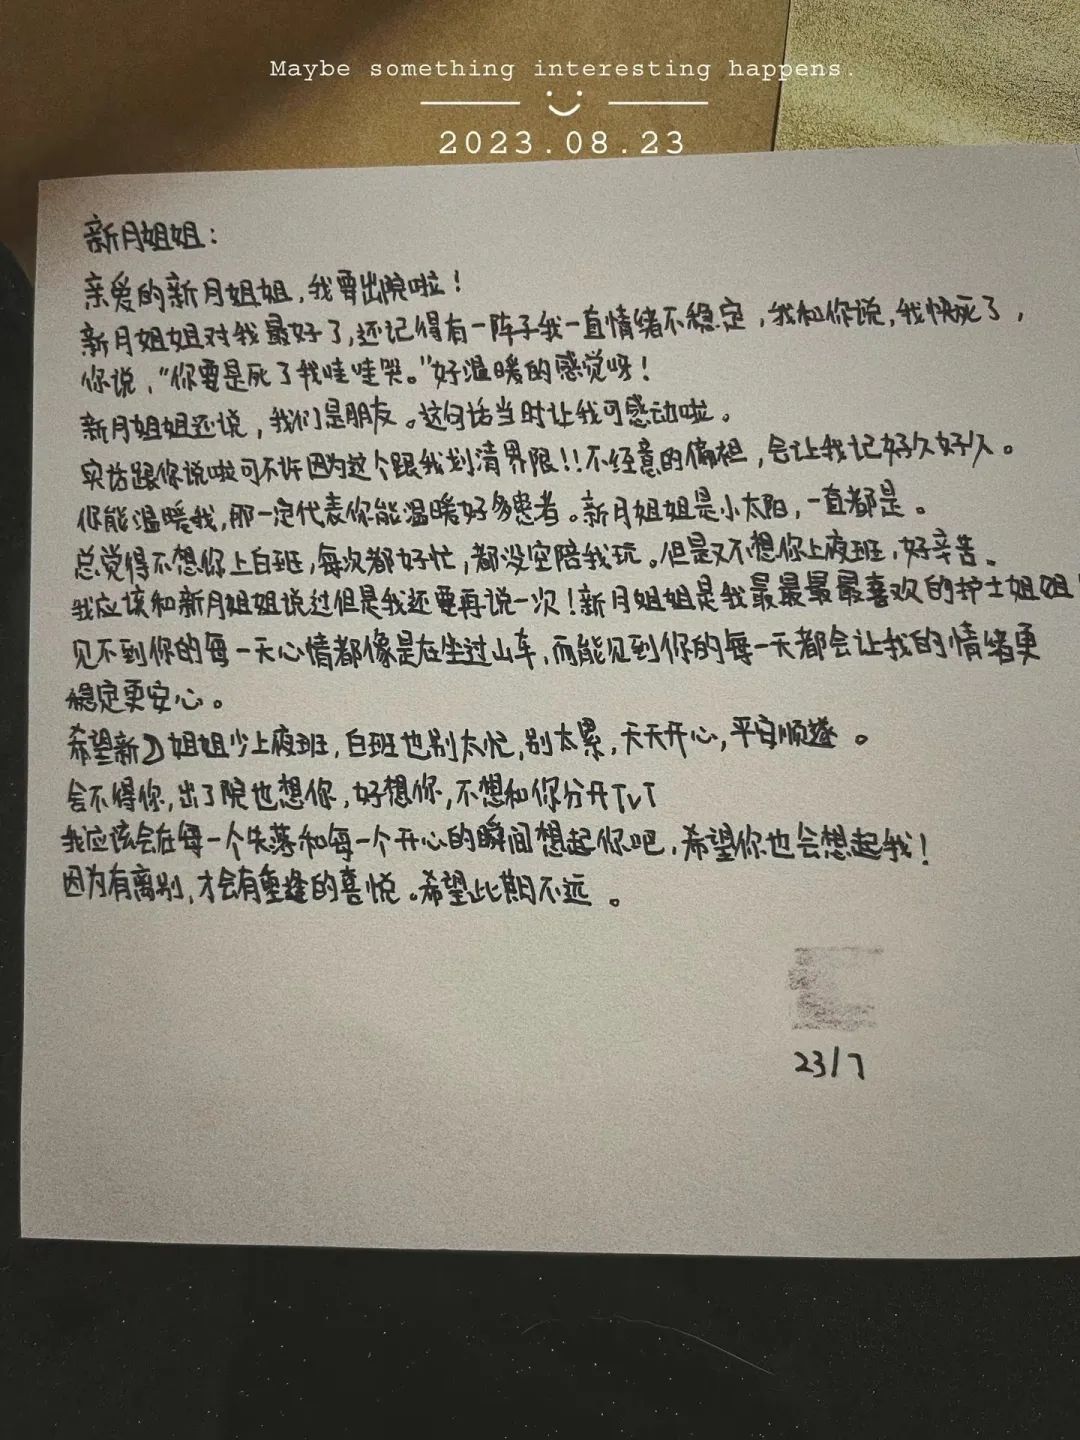 Maybe something interesting happens.
2023.08.23
新月姐姐：
亲爱的新月姐姐，我要出院啦！
新月姐姐对我最好了，还记得有一阵子我一直情绪不稳定，我和你说，我快死了，
你说，“你要是死了我哇哇哭。”好温暖的感觉呀！
新月姐姐还说，我们是朋友。这句话当时让我可感动啦。
实话跟你说啦可不许因为这个跟我划清界限！！不经意的偏袒，会让我记好久好久。
你能温暖我，那一定代表你能温暖好多患者。新月姐姐是小太阳，一直都是。
总觉得不想你上白班，每次都好忙，都没空陪我玩。但是又不想你上夜班，好辛苦。
我应该和新月姐姐说过但是我还要再说一次！新月姐姐是我最最最最喜欢的护士姐姐！
见不到你的每一天心情都像是在坐过山车，而能见到你的每一天都会让我的情绪更
稳定更安心。
希望新月姐姐少上夜班，白班也别太忙，别太累，天天开心，平安顺遂。
舍不得你，出了院也想你，好想你，不想和你分开TvT
我应该会在每一个失落和每一个开心的瞬间想起你吧，希望你也会想起我！
因为有离别，才会有重逢的喜悦。希望此期不远。
23/7